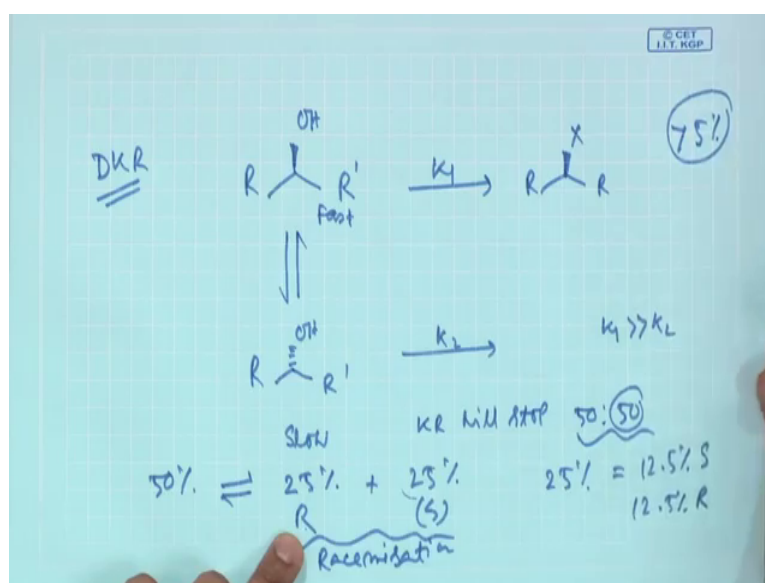 © CET
I.I.T. KGP
75%
DKR
OH
R R'
Fast
K1
X
R R
OH
R R'
K2
K1 >> K2
Slow
KR will stop 50:50
50% ⇌ 25% + 25%
R (S)
Racemisation
25% = 12.5% S
12.5% R